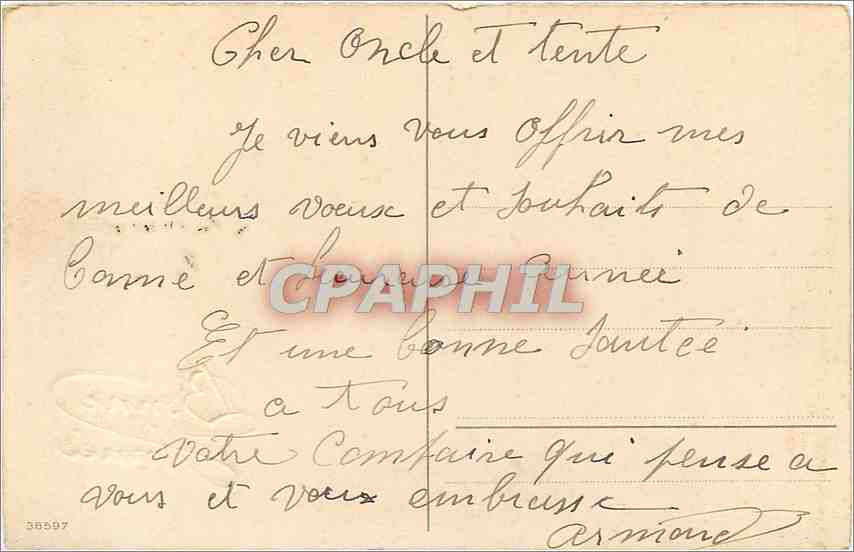 Cher Oncle et tente
Je viens vous offrir mes
meilleurs voeux et souhaits de
bonne et heureuse Année
CPAPHIL
Et une bonne santée
a tous
votre qui pense a
vous et vous embrasse
Armand
36597